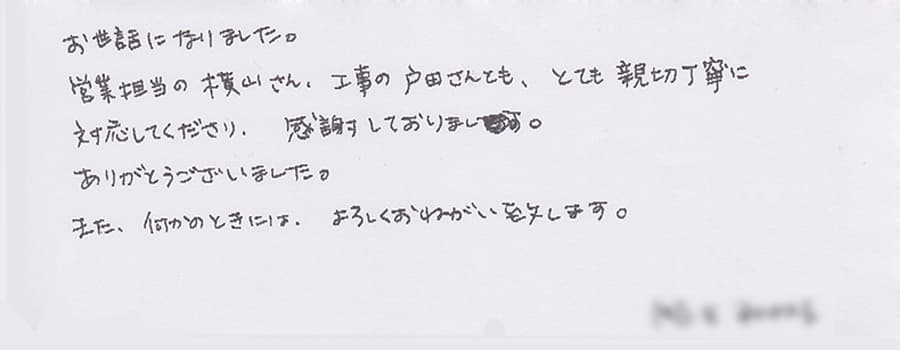 お世話になりました。
営業担当の横山さん、工事の戸田さんとも、とても親切丁寧に
対応してくださり、感謝すしております。
ありがとうございました。
また、何かのときには、よろしくおねがい致します。